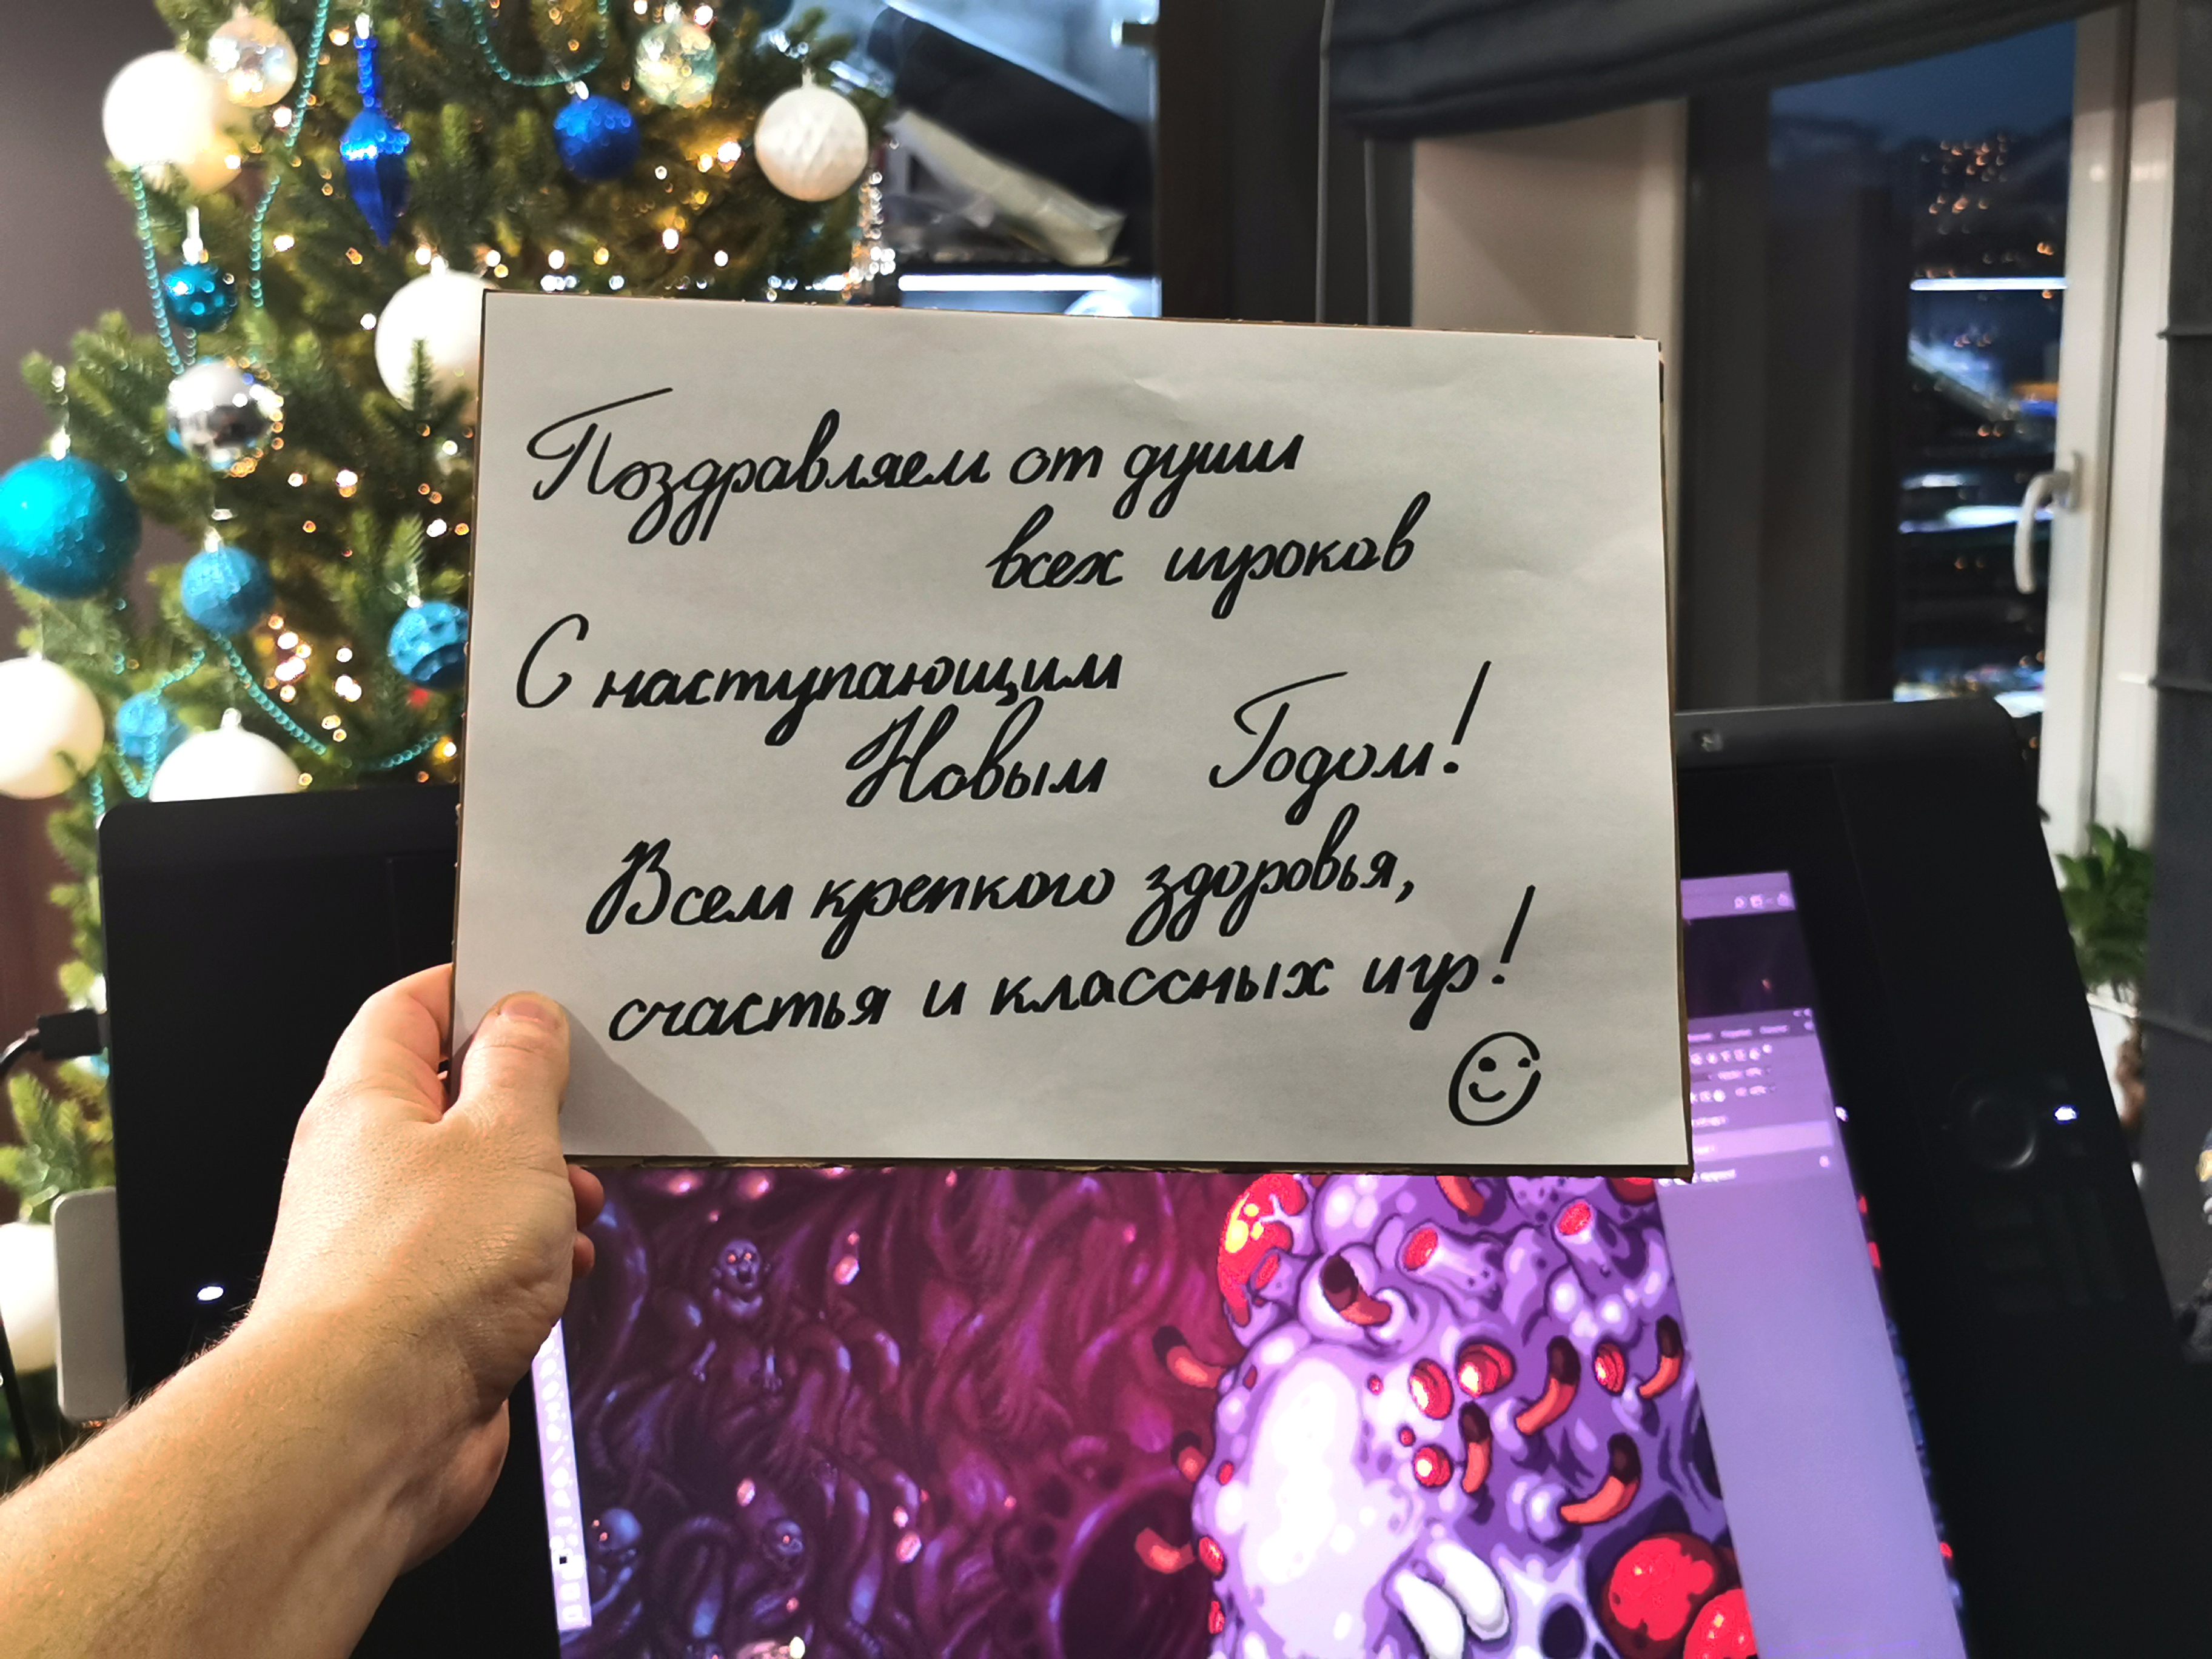 Поздравляем от души
всех игроков
С наступающим
Новым Годом!
Всем крепкого здоровья,
счастья и классных игр!